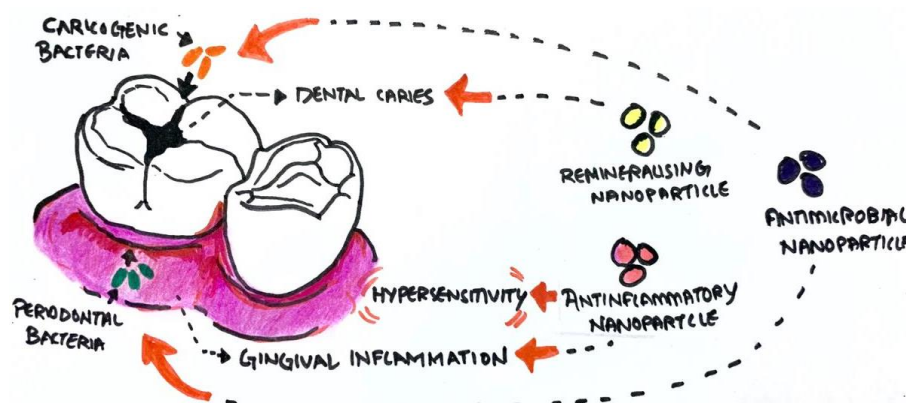 CARIOGENIC
BACTERIA
DENTAL CARIES
REMINERALISING
NANOPARTICLE
ANTIMICROBIAL
NANOPARTICLE
HYPERSENSITIVITY
ANTINFLAMMATORY
NANOPARTICLE
PERIODONTAL
BACTERIA
GINGIVAL INFLAMMATION